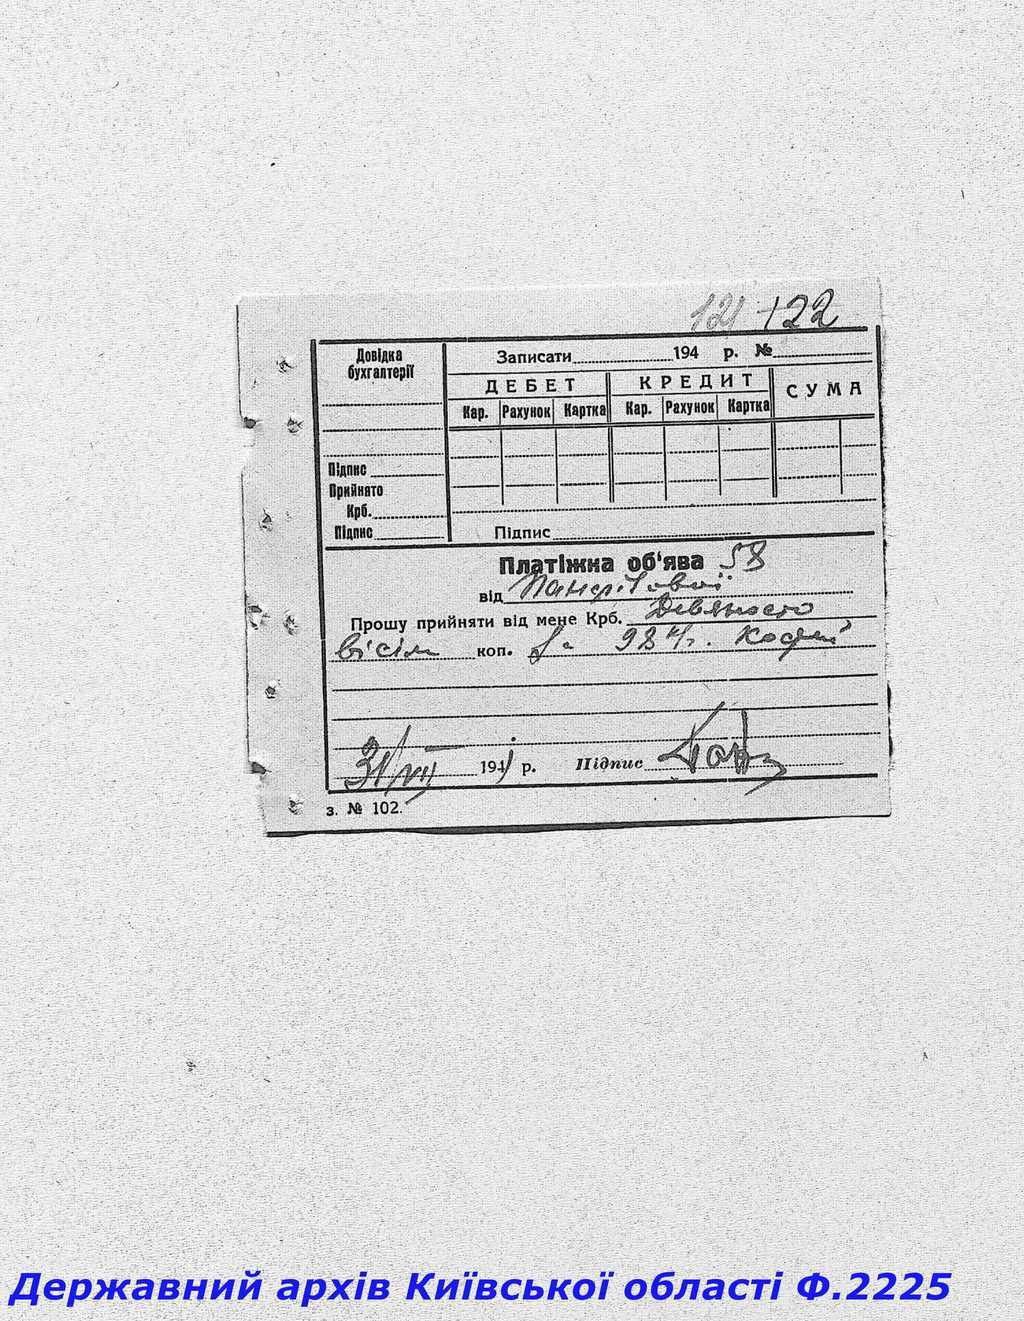 121 122
Довідка
бухгалтерії
Записати 194 р. №
ДЕБЕТ КРЕДИТ СУМА
Кар. Рахунок Картка Кар. Рахунок Картка
Підпис
Прийнято
Крб.
Підпис
Підпис
Платіжна об'ява 58
від
Прошу прийняти від мене Крб. Девяносто
вісім коп. 98
31/VII 1941 р. Підпис
з. № 102.
Державний архів Київської області Ф.2225